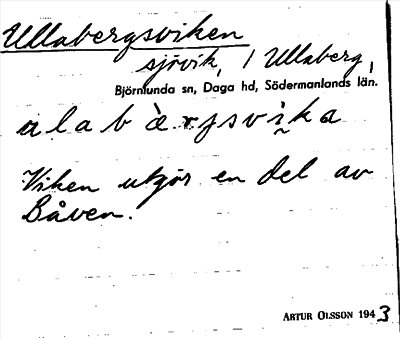 Ullabergsviken
sjövik, / Ullaberg,
Björnlunda sn, Daga hd, Södermanlands län.
ulabàrjsvìka
Viken utgör en del av
Båven.
ARTUR OLSSON 1943